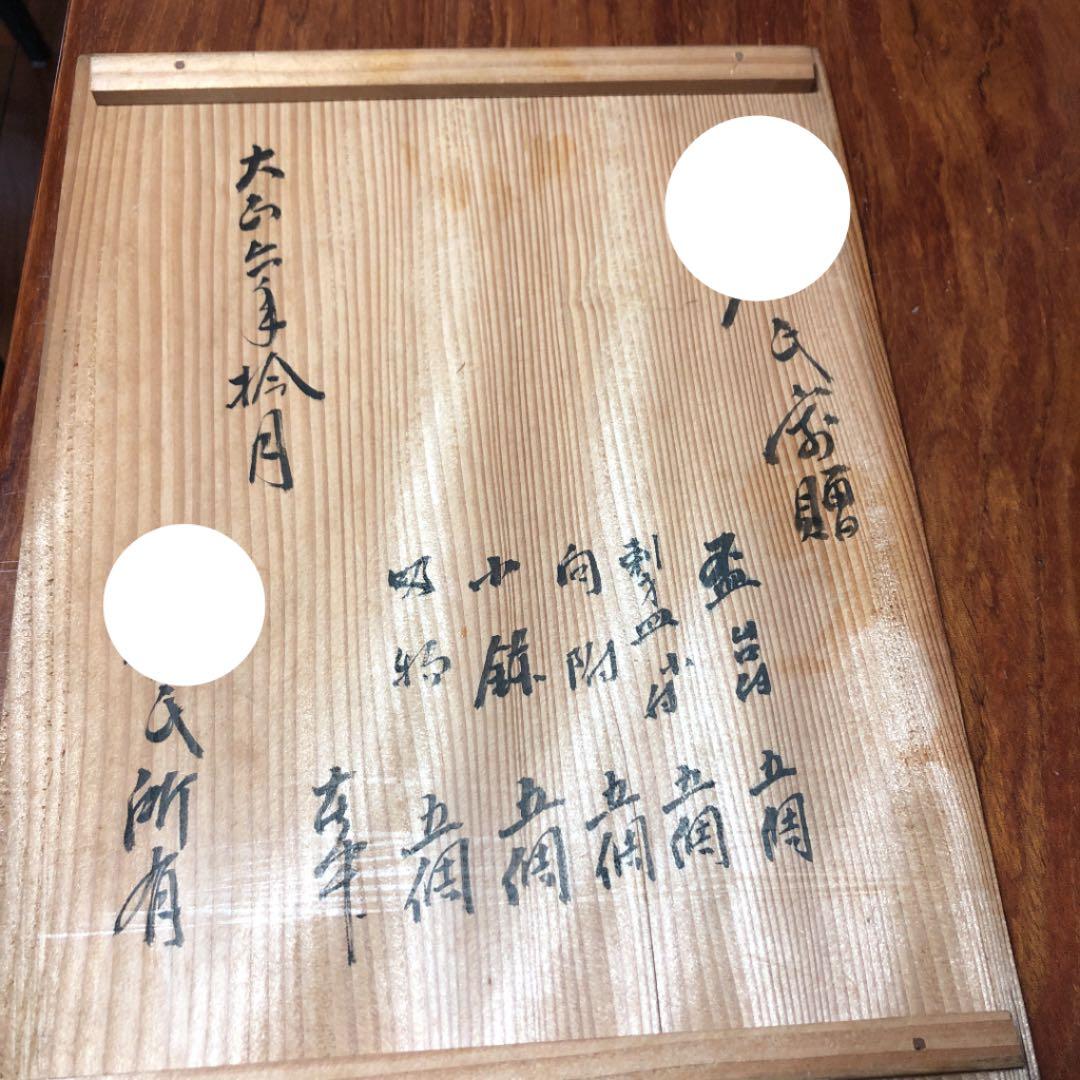 氏寄贈
盃台付 五個
刺身皿小付 五個
向附 五個
小鉢 五個
吸物 五個
大正六年拾月
氏所有